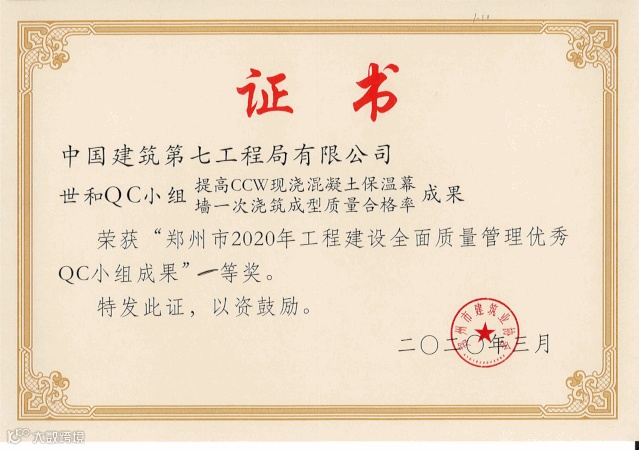 证书
中国建筑第七工程局有限公司
世和QC小组 提高CCW现浇混凝土保温幕 成果
墙一次浇筑成型质量合格率
荣获“郑州市2020年工程建设全面质量管理优秀
QC小组成果”一等奖。
特发此证，以资鼓励。
郑州市建筑业协会
二〇二〇年三月
大数跨境